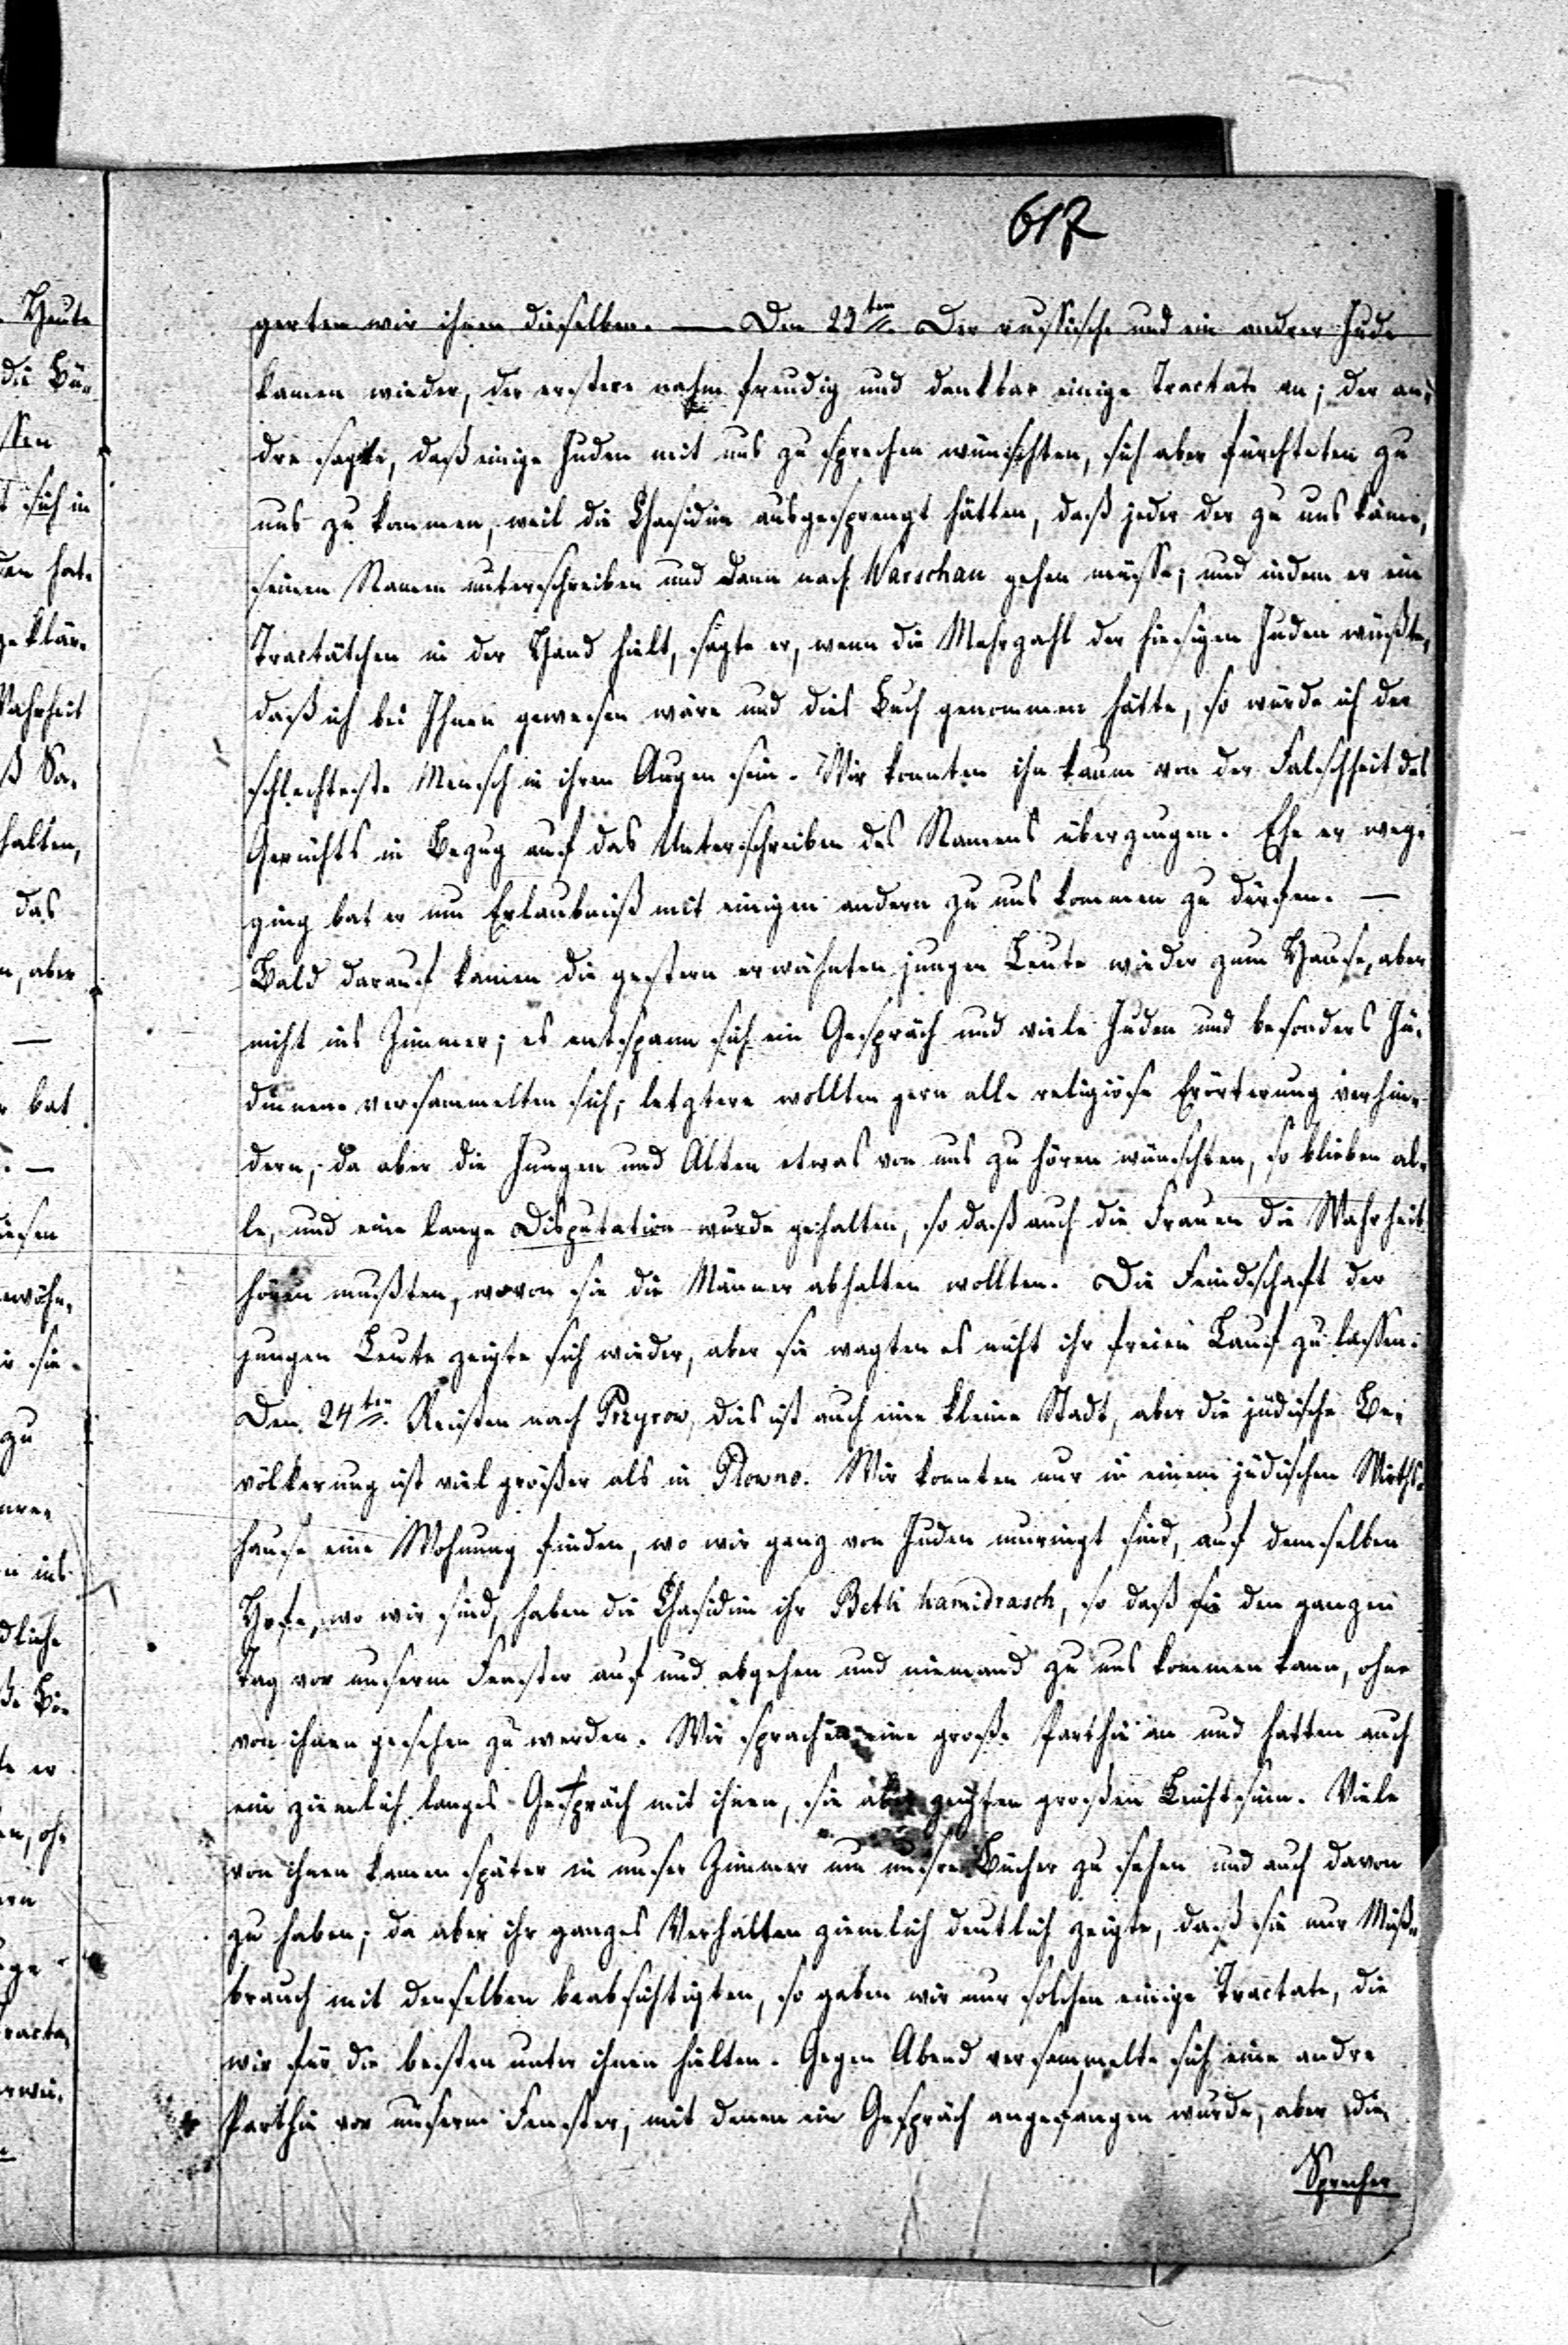 617
gerten wir ihnen dieselben. — Den 23ten Der russische und ein andrer Jude
kamen wieder, der erstere nahm freudig und dankbar einige Tractate an; der an-
dre sagte, daß einige Juden mit uns zu sprechen wünschten, sich aber fürchteten zu
uns zu kommen, weil die Chasidim ausgesprengt hätten, daß jeder der zu uns käme,
seinen Namen unterschreiben und dann nach Warschau gehen müsse; und indem er ein
Tractätchen in der Hand hielt, sagte er, wenn die Mehrzahl der hiesigen Juden wüßte,
daß ich bei Ihnen gewesen wäre und dies Buch genommen hätte, so würde ich der
schlechteste Mensch in ihren Augen sein. Wir konnten ihn kaum von der Falschheit des
Gerüchts in Bezug auf das Unterschreiben des Namens überzeugen. Ehe er weg-
ging bat er um Erlaubniß mit einigen andern zu uns kommen zu dürfen. —
Bald darauf kamen die gestern erwähnten jungen Leute wieder zum Hause, aber
nicht ins Zimmer; es entspann sich ein Gespräch und viele Juden und besonders Jü-
dinnen versammelten sich; letztere wollten gern alle religiöse Erörterung verhin-
dern, da aber die Jungen und Alten etwas von uns zu hören wünschten, so blieben al-
le, und eine lange Disputation wurde gehalten, so daß auch die Frauen die Wahrheit
hören mußten, wovon sie die Männer abhalten wollten. Die Feindschaft der
jungen Leute zeigte sich wieder, aber sie wagten es nicht ihr freien Lauf zu lassen.
Den 24ten Reisten nach Przyrow, dies ist auch eine kleine Stadt, aber die jüdische Be-
völkerung ist viel größer als in Plowno. Wir konnten nur in einem jüdischen Wirths-
hause eine Wohnung finden, wo wir ganz von Juden umringt sind, auf demselben
Hofe, wo wir sind, haben die Chasidim ihr Beth hamidrasch, so daß sie den ganzen
Tag vor unserm Fenster auf und abgehen und niemand zu uns kommen kann, ohne
von ihnen gesehen zu werden. Wir sprachen eine große Parthie an und hatten auch
ein ziemlich langes Gespräch mit ihnen, sie aber zeigten großen Leichtsinn. Viele
von ihnen kamen später in unser Zimmer um unsre Bücher zu sehen und auch davon
zu haben; da aber ihr ganzes Verhalten ziemlich deutlich zeigte, daß sie nur Miß-
brauch mit denselben beabsichtigten, so gaben wir nur solchen einige Tractate, die
wir für die besten unter ihnen hielten. Gegen Abend versammelte sich eine andre
Parthie vor unserm Fenster, mit denen ein Gespräch angefangen wurde, aber die
Sprecher